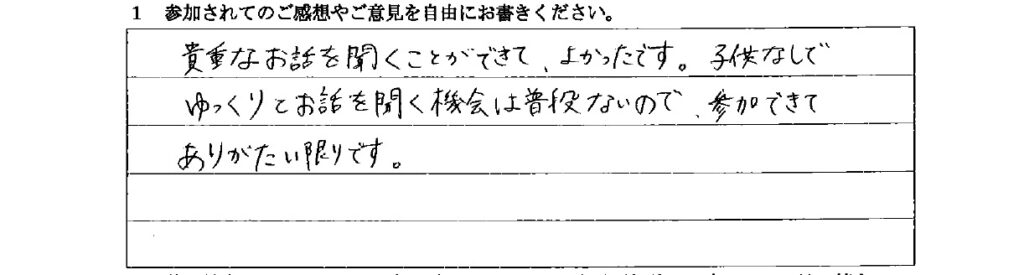 1 参加されてのご感想やご意見を自由にお書きください。
貴重なお話を聞くことができて、よかったです。子供なしで
ゆっくりとお話を聞く機会は普段ないので、参加できて
ありがたい限りです。